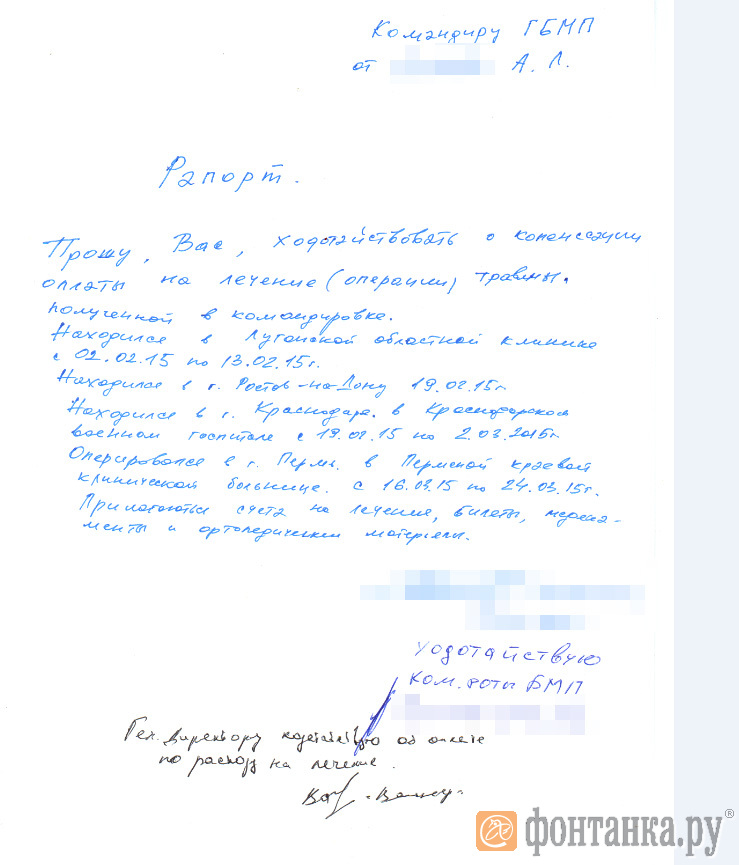 Командиру ГБМП
от А. Л.
Рапорт.
Прошу, Вас, ходотайствовать о копенсации
оплаты на лечение (операции) травмы.
полученной в командировке.
Находился в Луганской областной клинике
с 02.02.15 по 13.02.15г.
Находился в г. Ростов-на-Дону 19.02.15г
Находился в г. Краснодара. в Краснодарском
военном госпитале с 19.02.15 по 2.03.2015г
Оперировался в г. Пермь. в Пермской краевой
клинической больнице. с 16.03.15 по 24.03.15г.
Прилагаються счета на лечение, билеты, медика-
менты и ортопедические материалы.
Ходотайствую
Ком. роты БМП
Ген. Директору ходатайствую об оплате
по расходу на лечение.
фонтанка.ру®